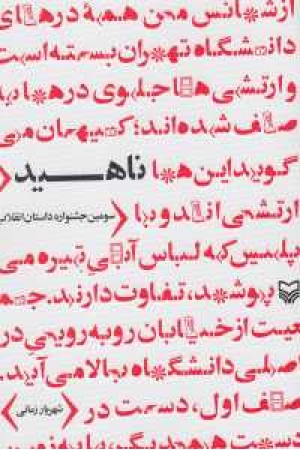 ازشانس من همهٔ درهای
دانشگاه تهران بسته است
وارتشی ها جلوی درها به
صف شده اند؛ کیهان می
گوید این ها ناهید
ارتشی اند و با
سومین جشنواره داستان انقلاب
پلیس که لباس آبی تیره می
پوشند، تفاوت دارند. جمـ
عیت از خیابان روبه رویی در
صلی دانشگاه بالا می آید.
صف اول، دست در
شهریار زمانی
دست همدیگر،